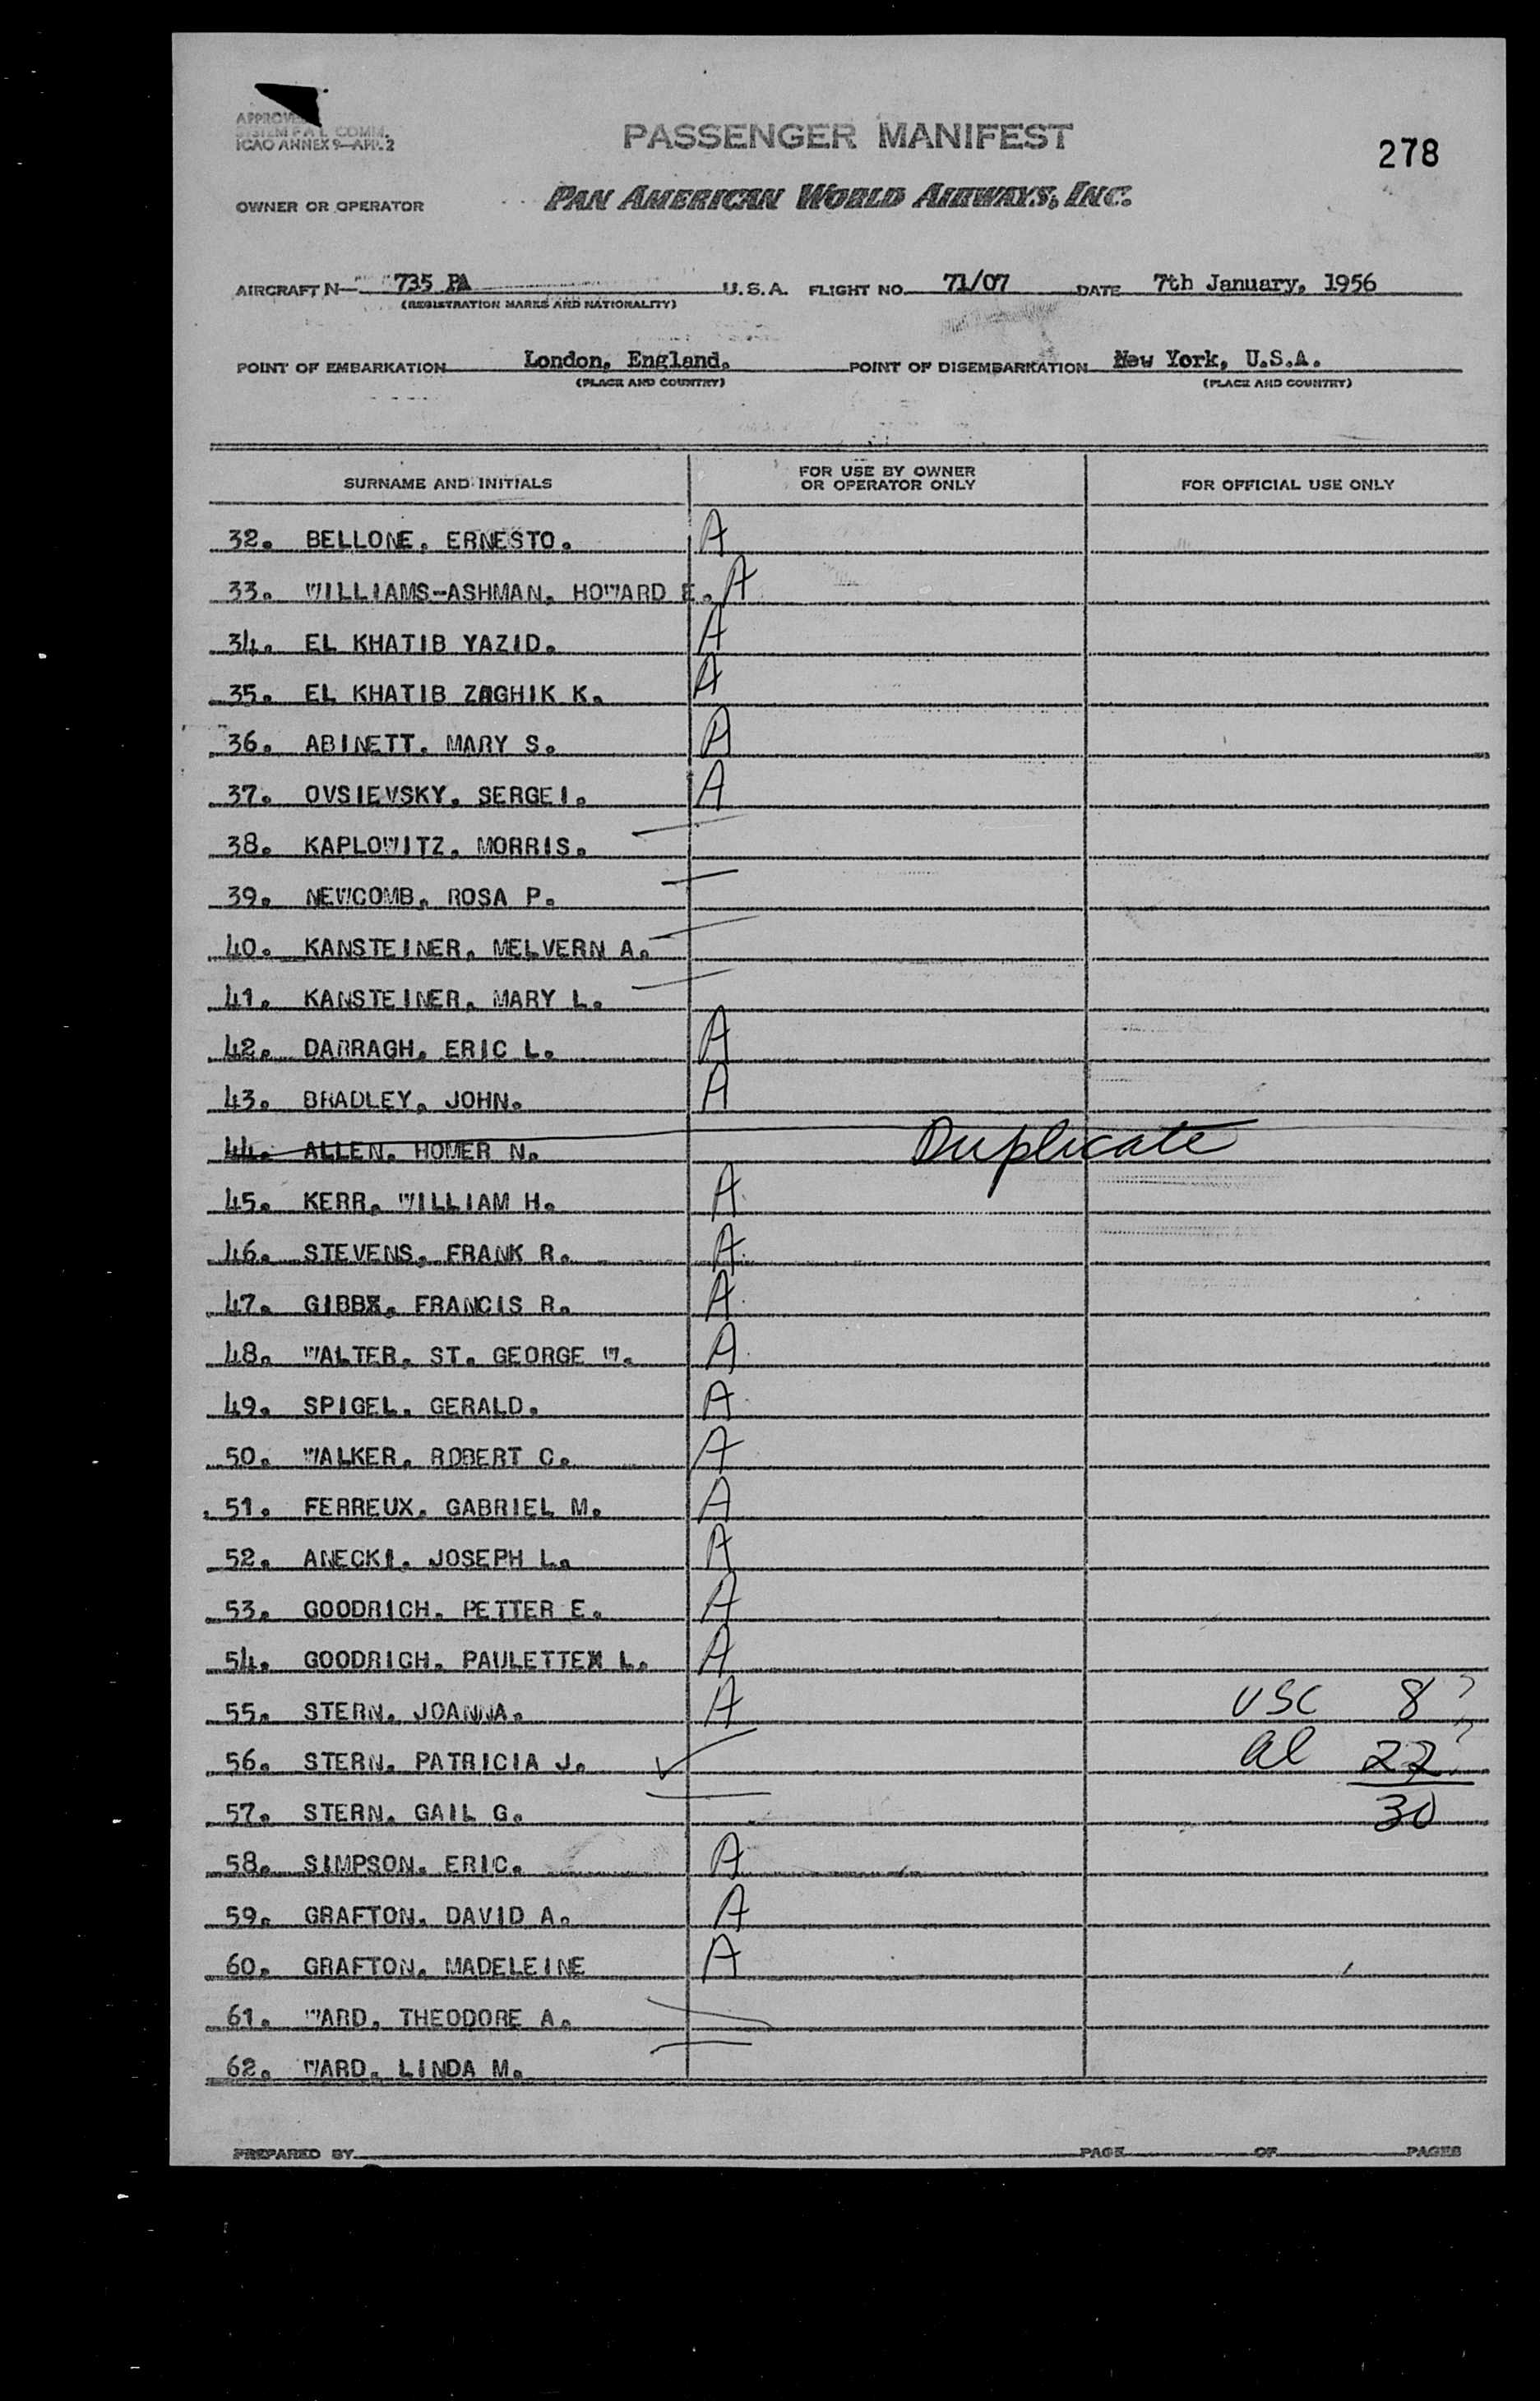 APPROVED
SYSTEM F A L COMM.
ICAO ANNEX 9—APP. 2
PASSENGER MANIFEST
278
OWNER OR OPERATOR
PAN AMERICAN WORLD AIRWAYS, INC.
AIRCRAFT N— 735 PA U.S.A. FLIGHT NO. 71/07 DATE 7th January, 1956
(REGISTRATION MARKS AND NATIONALITY)
POINT OF EMBARKATION London, England. POINT OF DISEMBARKATION New York, U.S.A.
(PLACE AND COUNTRY) (PLACE AND COUNTRY)
SURNAME AND INITIALS FOR USE BY OWNER OR OPERATOR ONLY FOR OFFICIAL USE ONLY
32. BELLONE, ERNESTO. A
33. WILLIAMS-ASHMAN, HOWARD E. A
34. EL KHATIB YAZID. A
35. EL KHATIB ZAGHIK K. A
36. ABINETT, MARY S. A
37. OVSIEVSKY, SERGEI. A
38. KAPLOWITZ, MORRIS.
39. NEWCOMB, ROSA P.
40. KANSTEINER, MELVERN A.
41. KANSTEINER, MARY L.
42. DARRAGH, ERIC L. A
43. BRADLEY, JOHN. A
44. ALLEN, HOMER N. Duplicate
45. KERR, WILLIAM H. A
46. STEVENS, FRANK R. A
47. GIBBX, FRANCIS R. A
48. WALTER, ST. GEORGE W. A
49. SPIGEL, GERALD. A
50. WALKER, ROBERT C. A
51. FERREUX, GABRIEL M. A
52. ANECKI, JOSEPH L. A
53. GOODRICH, PETTER E. A
54. GOODRICH, PAULETTEX L. A
55. STERN, JOANNA. A USC 8 ?
56. STERN, PATRICIA J. al 22 ?
57. STERN, GAIL G. 30
58. SIMPSON, ERIC. A
59. GRAFTON, DAVID A. A
60. GRAFTON, MADELEINE A
61. WARD, THEODORE A.
62. WARD, LINDA M.
PREPARED BY PAGE OF PAGES